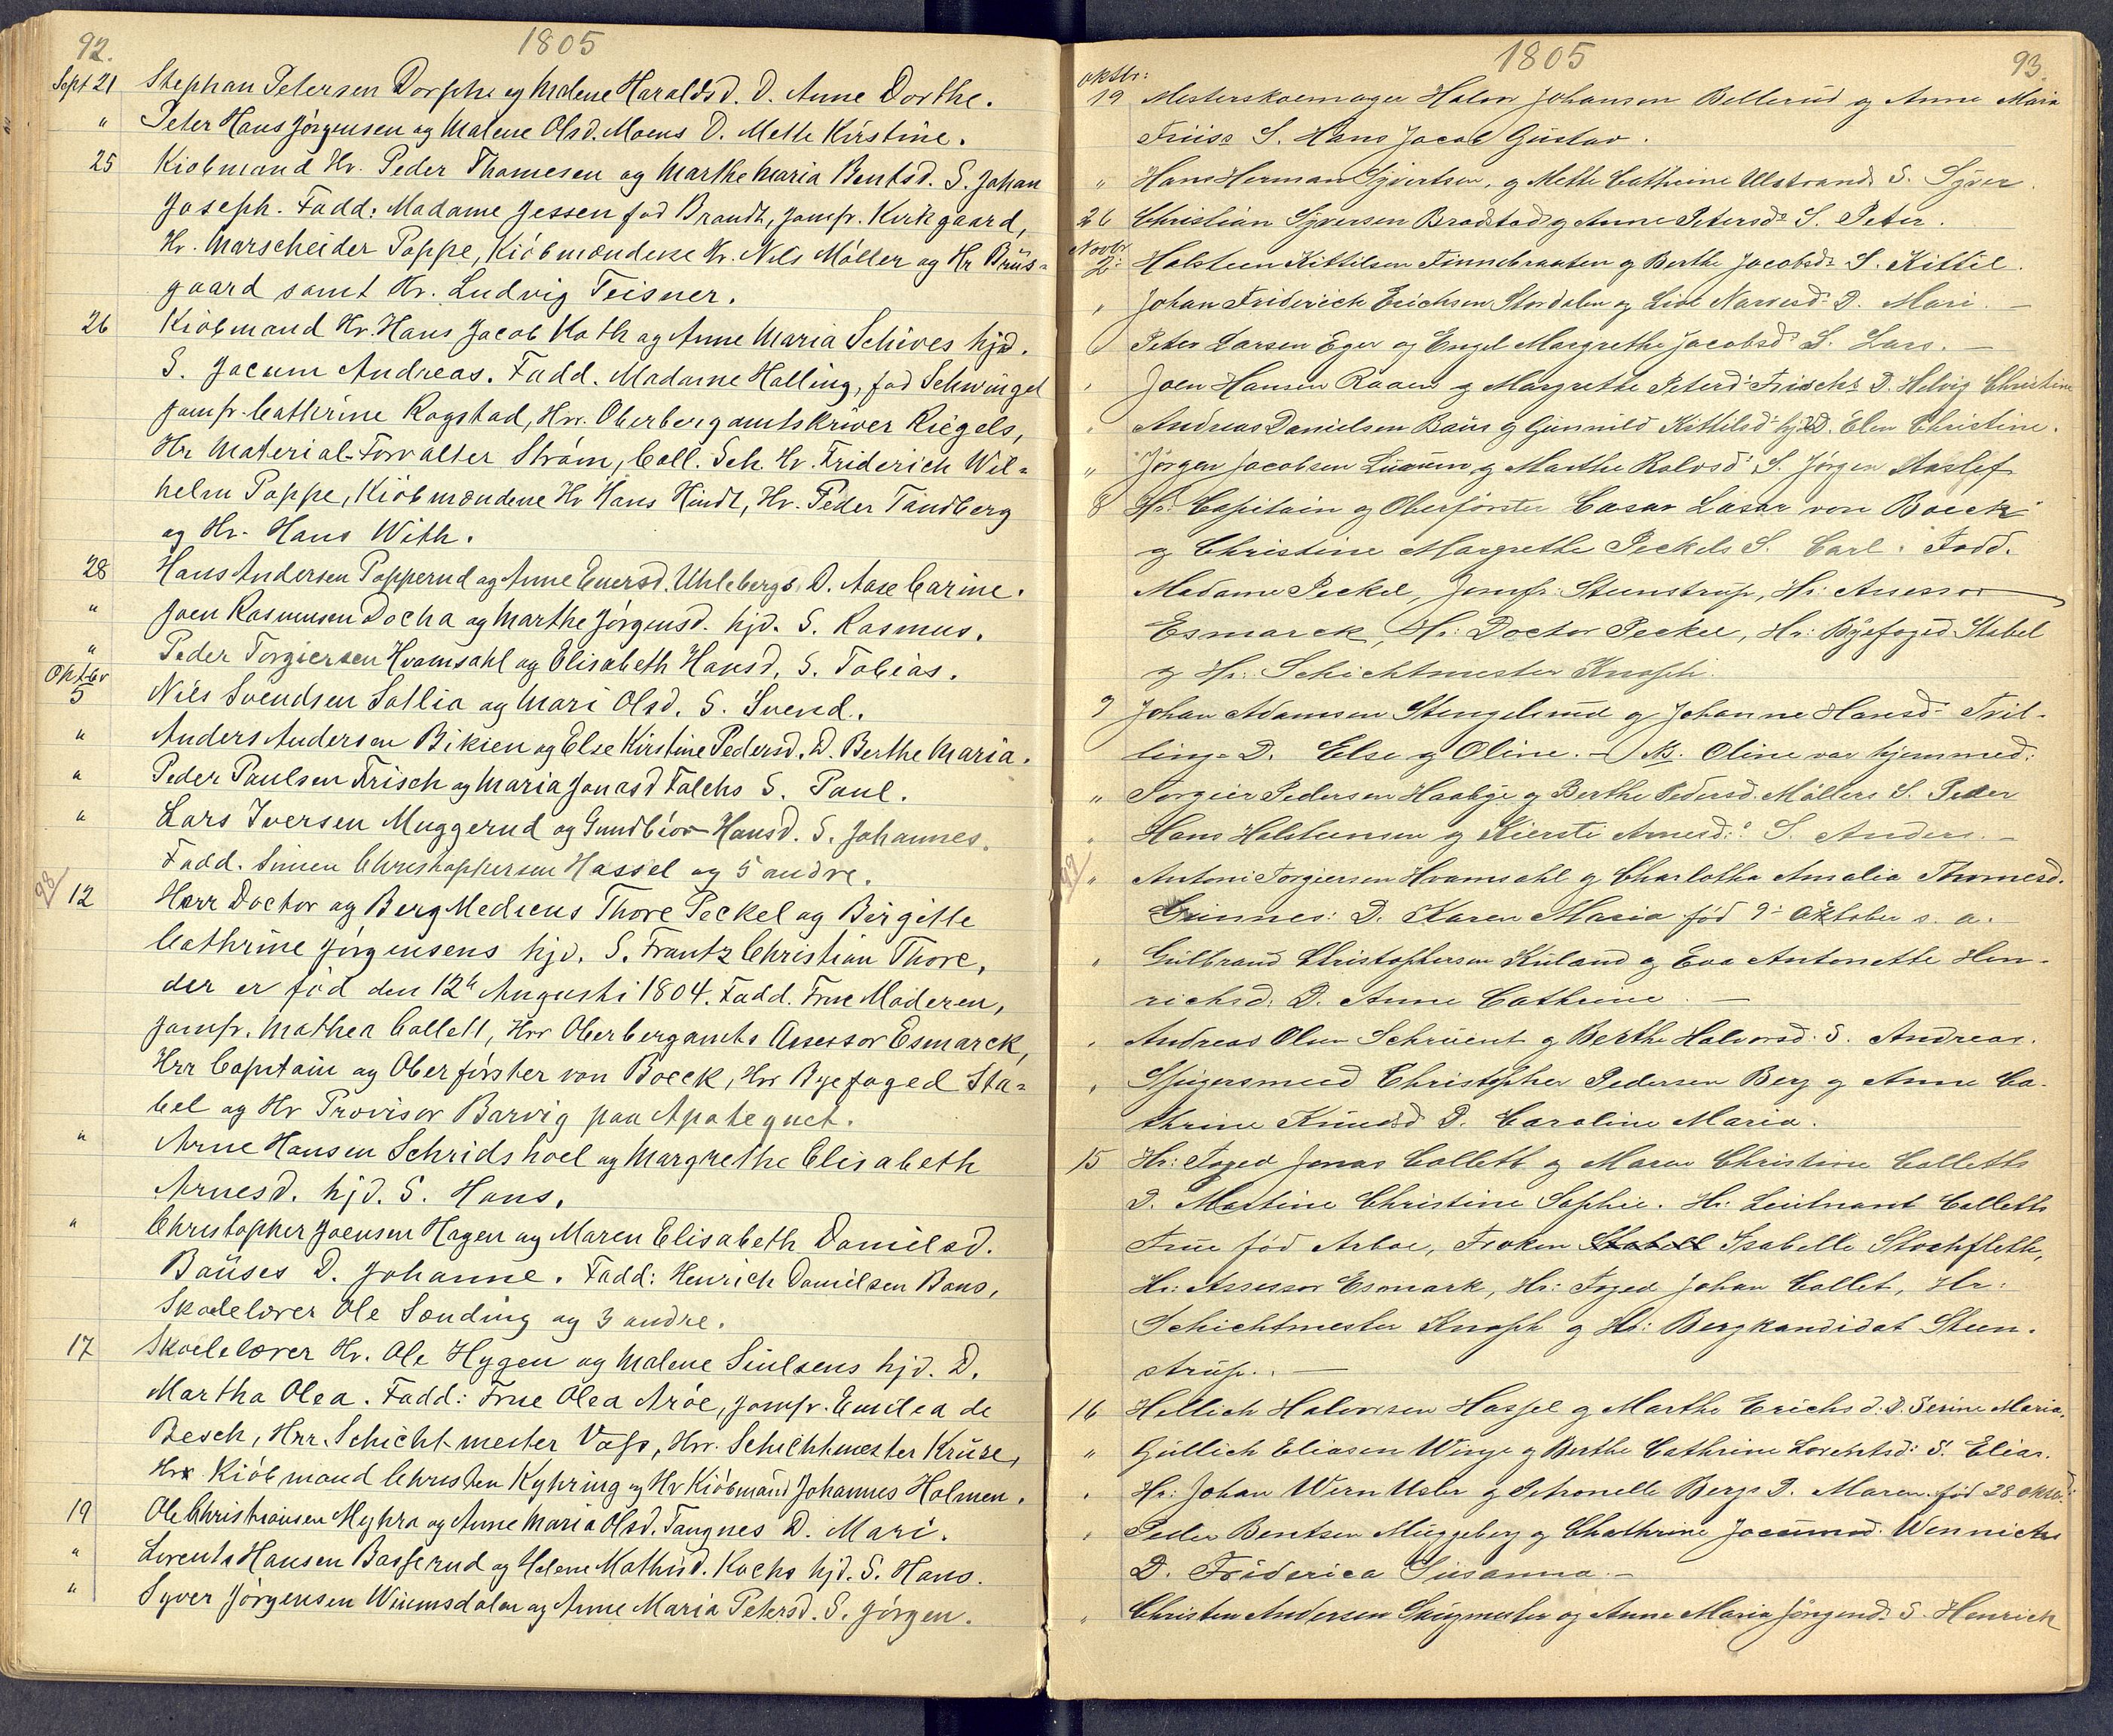 92.
1805
Sept 21 Stephan Petersen Dorphe og Malene Haraldsd. D. Anne Dorthe.
" Peter Hans Jörgensen og Malene Olsd. Moens D. Mette Kirstine.
25 Kiöbmand Hr. Peder Thomesen og Marthe Maria Bentsd. S. Johan
Joseph. Fadd: Madame Jessen fød Brandt, Jomfr. Kirkgaard,
Hr. Marscheider Poppe, Kiöbmændene Hr. Nils Möller og Hr Brüs=
gaard samt Hr. Ludvig Teisner.
26 Kiöbmand Hr. Hans Jacob Koth og Anne Maria Schives hjd.
S. Jacum Andreas. Fadd. Madame Halling, fød Schwingel
Jomfr. Cathrine Rogstad, Hrr. Oberbergamtskriver Riegels,
Hr Material-Forvalter Ström, Coll. Seh. Hr. Friderich Wil=
helm Poppe, Kiöbmændene Hr Hans Hindt, Hr. Peder Tandberg
og Hr. Hans With.
28 Hans Andersen Popperud og Anne Enersd. Uhlebergs D. Aase Carine.
" Joen Rasmusen Docha og Marthe Jörgensd. hjd. S. Rasmus.
" Peder Torgiersen Hvamsahl og Elisabeth Hansd. S. Tobias.
Oktbr
5 Nils Svendsen Sallia og Mari Olsd. S. Svend.
" Anders Andersen Bikien og Else Kirstine Pedersd. D. Berthe Maria.
" Peder Paulsen Frisch og Maria Jonasd Falchs S. Paul.
" Lars Iversen Muggerud og Gundbiör Hansd. S. Johannes.
Fadd. Simen Christophersen Hassel og 5 andre.
98/ 12 Herr Doctor og BergMedicus Thore Peckel og Birgitte
Cathrine Jörgensens hjd. S. Frantz Christian Thore,
der er född den 12te Augusti 1804. Fadd. Frue Moderen,
Jomfr. Mathea Collett, Hrr Oberbergamts Assessor Esmarck,
Hrr Capitain og Oberförster von Boeck, Hr. Byefoged Sta=
bel og Hr Provisor Barvig paa Apotequet.
" Arne Hansen Schridshoel og Margrethe Elisabeth
Arnesd. hjd. S. Hans.
" Christopher Joensen Hagen og Maren Elisabeth Danielsd.
Baüses D. Johanne. Fadd: Henrich Danielsen Baus,
Skolelærer Ole Sending og 3 andre.
17 Skolelærer Hr. Ole Hygen og Malene Siulsens hjd. D.
Martha Olea. Fadd: Frue Olea Aröe, Jomfr. Emilea de
Besch, Hrr. Schichtmester Vass, Hrr. Schichtmester Krüse,
Hr Kiöbmand Christen Kyhring og Hr Kiöbmand Johannes Holmen.
19 Ole Christiansen Myhra og Anne Maria Olsd. Tangnes D. Mari.
" Lorents Hansen Basserud og Helene Mathisd. Kochs hjd. S. Hans.
" Syver Jörgensen Winmsdalen og Anne Maria Petersd. S. Jörgen.
1805
93.
oktbr:
19 Mesterskoemager Halvor Johansen Bellerud og Anne Maria
Friiss S. Hans Jacob Gustav.
" Hans Herman Syvertsen, og Mette Cathrine Ulstrands S. Syver.
26 Christian Syversen Bradstad og Anne Petersd: S. Peter.
Novbr
2: Holsteen Kittilsen Finnebraaten og Berthe Jacobsd: S. Kittil.
" Johan Friderich Erichsen Stordalen og Live Narvesd: D. Mari. —
Peter Larsen Eger og Engel Margrethe Jacobsd: S. Lars. —
" Joen Hansen Raaen og Margrethe Petersd: Frischs D. Helvig Christine
" Andreas Danielsen Baüs og Gunnild Kittilsd: hjd. D. Elen Christine.
" Jörgen Jacobsen Luamen og Marthe Rolvsd: S. Jörgen Aaslef
8 Hr. Capitain og Oberförster Casar Lasar von Boeck
og Christine Margrethe Peckels S. Carl. Fadd.
Madame Peckel, Jomfr. Steenstrup, Hr: Assessor
Esmarck, Hr: Doctor Peckel, Hr: Byefoged Stabel
og Hr: Schichtmester Knoph.
9 Johan Adamsen Stengelsrud og Johanne Hansd: Tvil-
ling= D. Else og Oline. — NB. Oline var hjemmed:
" Torgier Pedersen Haabye og Berthe Pedersd. Möllers S. Peder
" Hans Holsteensen og Kiersti Arnesd: S. Anders. —
99/ " Antoni Torgiersen Hvamsahl og Charlotha Amalia Thomesd.
Grinnes: D. Karen Maria fód 9: Oktober s. a.
" Gulbrand Christophersen Ruland og Eva Antonette Hen-
richsd: D. Anne Cathrine. —
" Andreas Olsen Schrüent og Berthe Halvorsd: S. Andreas.
" Spigersmed Christopher Pedersen Berg og Anne Ca-
thrine Knudsd D. Caroline Maria.
15 Hr: Foged Jonas Collett og Maren Christine Colletts
D. Martine Christine Sophie. Hr. Lieutnant Colletts
Frue fód Arboe, Fröken Stabell Isabelle Stockfleth,
Hr: Assessor Esmark, Hr: Foged Johan Collet, Hr:
Schichtmester Knoph og Hr: Bergkandidat Steen-
strup. —
16 Hellich Halvorsen Hassel og Marthe Erichsd: D. Serine Maria.
" Gullich Eliasen Winje og Berthe Cathrine Lorentsd: S. Elias.
" Hr: Johan Wern Usler og Petronelle Bergs D. Maren. fód 28 oktbr:
" Peder Bentsen Muggeberg og Chathrine Jacumsd. Wennichs
D. Friderica Susanna. —
" Christen Andersen Saugmester og Anne Maria Jörgensd: S. Henrich